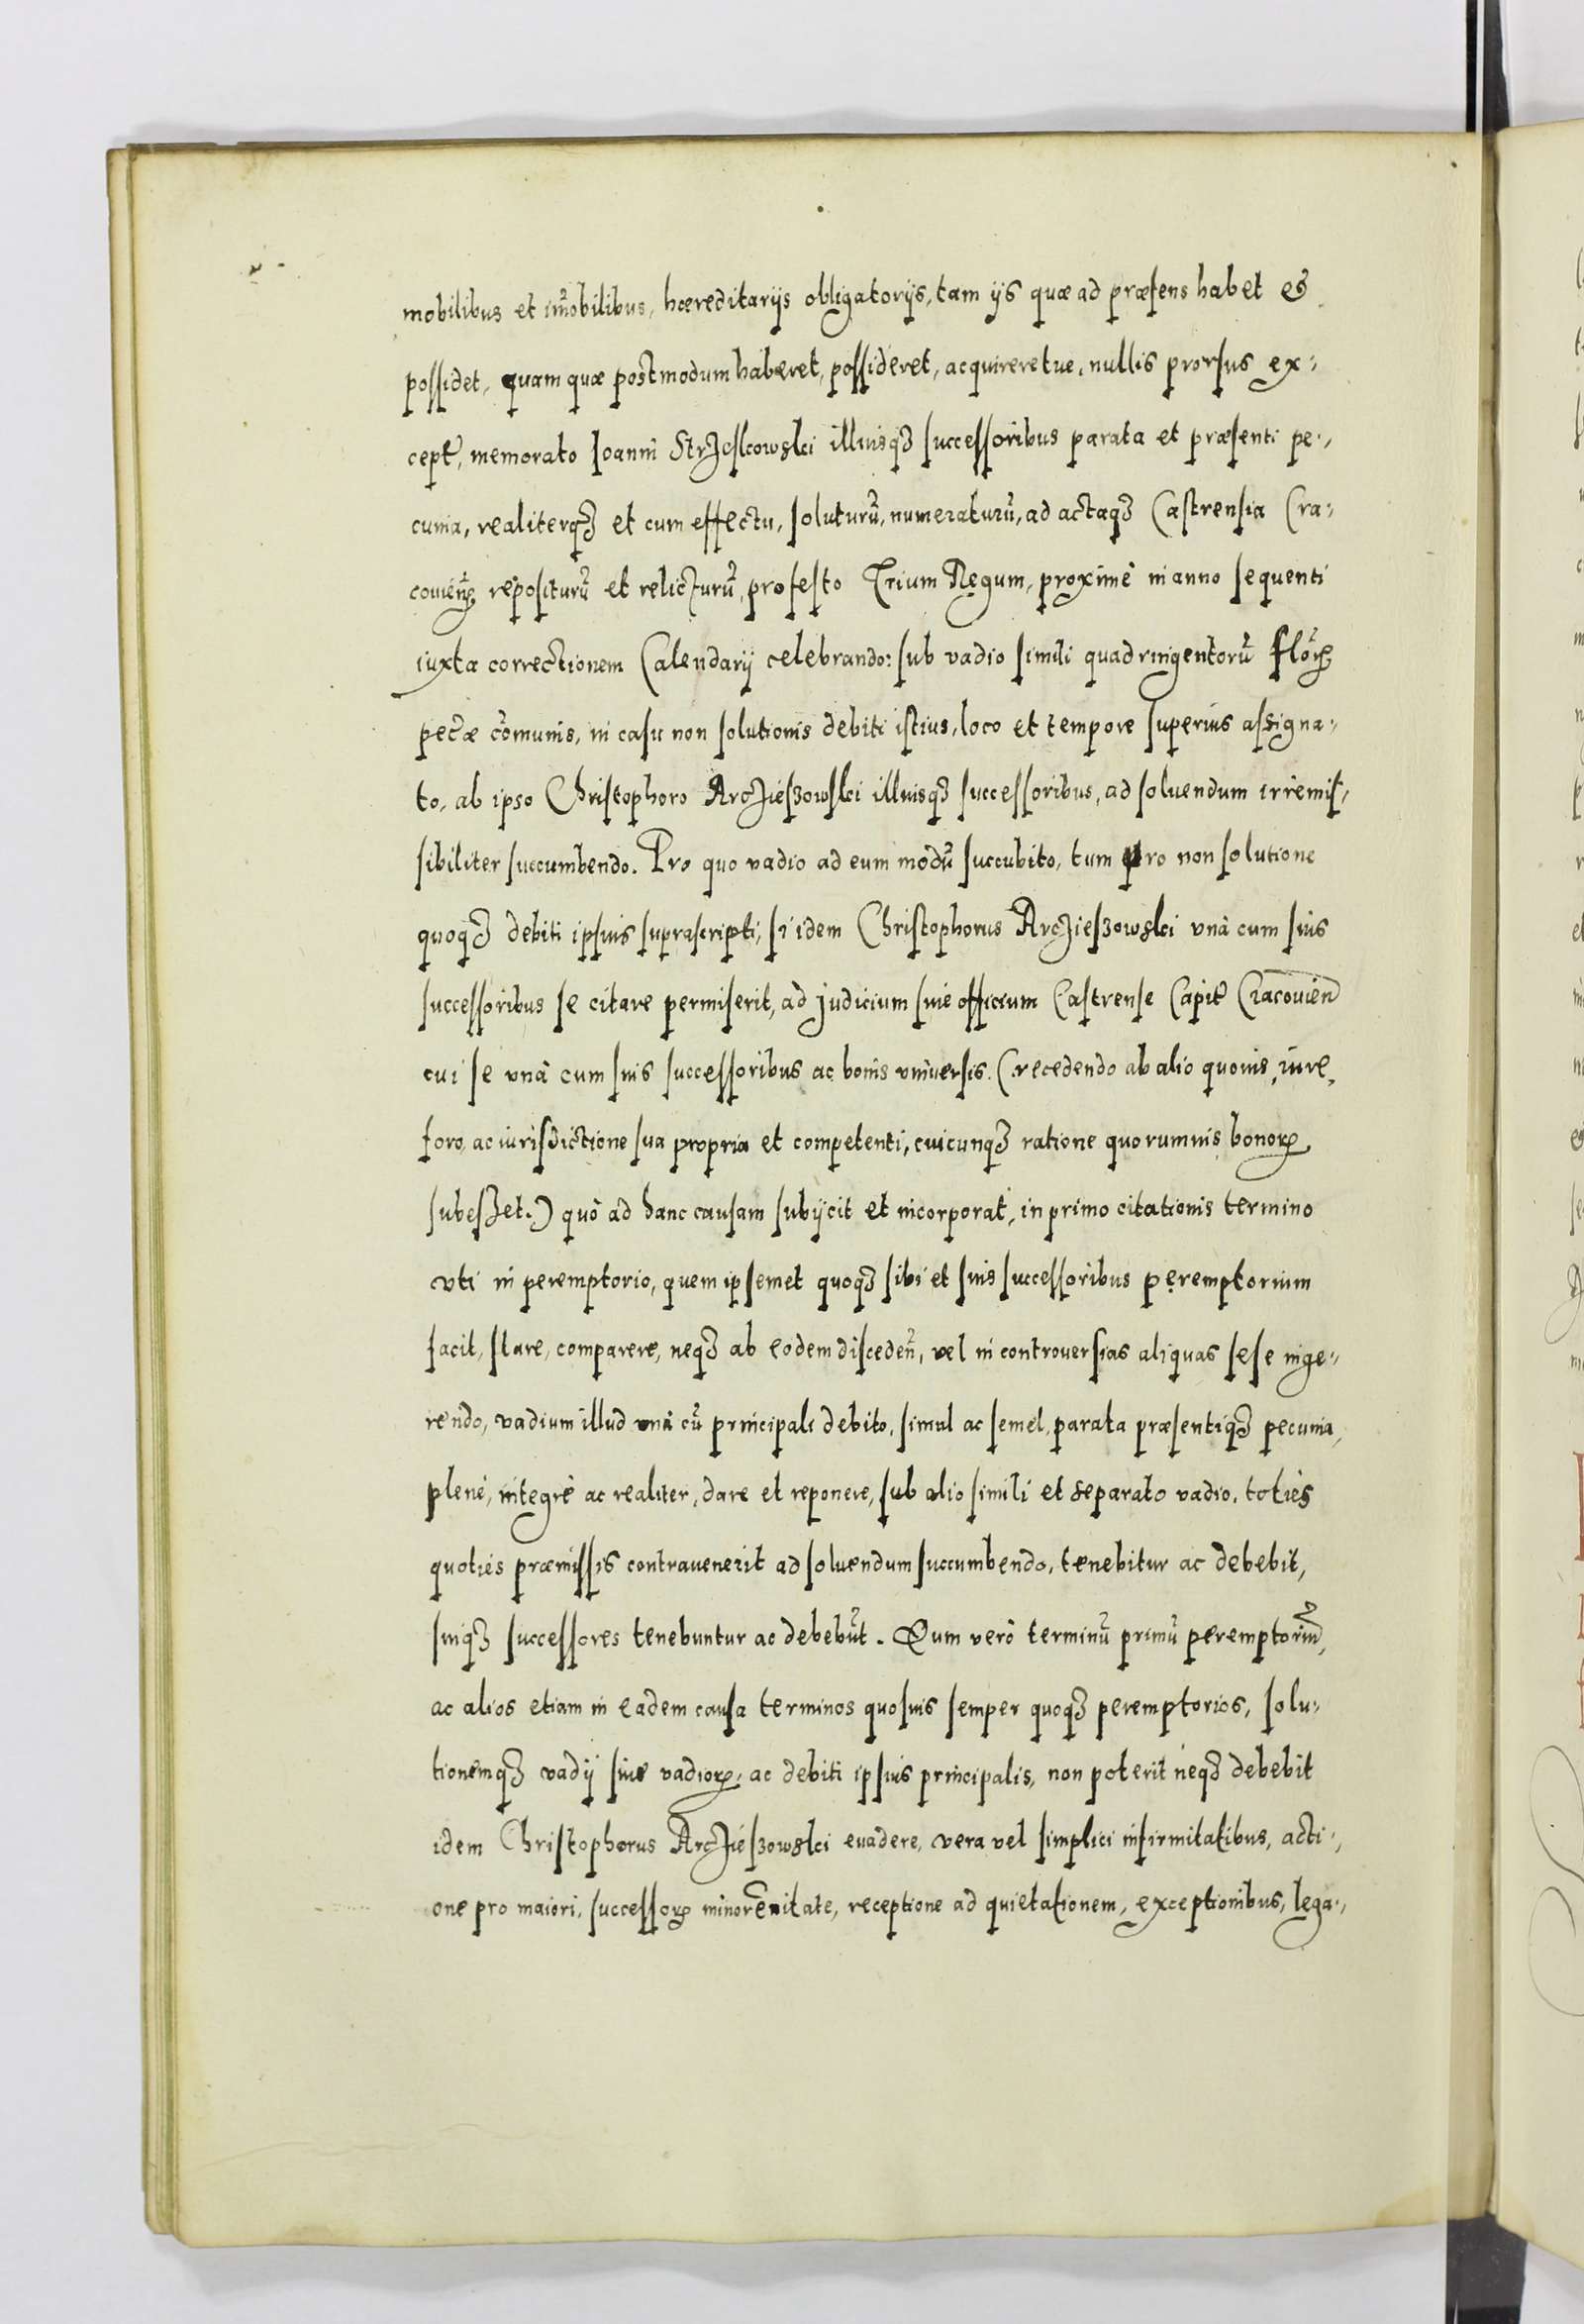 mobilibus et im̃obilibus, hæreditarijs obligatorijs, tam ijs quæ ad præsens habet et
possidet, quam quæ postmodum haberet, possideret, acquireretue, nullis prorsus ex-
cept̃, memorato Ioanni Strzeskowski illiusq3 successoribus parata et præsenti pe-
cunia, realiterq3 et cum effectu, soluturũ, numeraturũ, ad actaq3 Castrensia Cra-
couieñ repositurũ et relicturũ, pro festo Trium Regum, proximè in anno sequenti
iuxta correctionem Calendarij celebrando: sub vadio simili quadringentorũ floꝝ
pec̃æ com̃unis, in casu non solutionis debiti istius, loco et tempore superius assigna-
to, ab ipso Christophoro Arczieszowski illiusq3 successoribus, ad soluendum irremis-
sibiliter succumbendo. Pro quo vadio ad eum modũ succubito, tum pro non solutione
quoq3 debiti ipsius suprascripti, si idem Christophorus Arczieszowski vnà cum suis
successoribus se citare permiserit, ad Judicium siue officium Castrense Capit̃ Cracouieñ
cui se vnà cum suis successoribus ac bonis vniuersis (recedendo ab alio quouis iure,
foro, ac iurisdictione sua propria et competenti, cuicunq3 ratione quorumuis bonoꝝ
subesset.) quò ad hanc causam subijcit et incorporat, in primo citationis termino
vti in peremptorio, quem ipsemet quoq3 sibi et suis successoribus peremptorium
facit, stare, comparere, neq3 ab eodem discedeñ, vel in controuersias aliquas sese inge-
rendo, vadium illud vnà cũ principali debito, simul ac semel, parata præsentiq3 pecunia,
plenè, integrè ac realiter, dare et reponere, sub alio simili et separato vadio, toties
quoties præmissis contrauenerit ad soluendum succumbendo, tenebitur ac debebit,
suiq3 successores tenebuntur ac debebũt. Quem verò terminũ primũ peremptoriũ,
ac alios etiam in eadem causa terminos quosuis semper quoq3 peremptorios, solu-
tionemq3 vadij siue vadioꝝ, ac debiti ipsius principalis, non poterit neq3 debebit
idem Christophorus Arczieszowski euadere, vera vel simplici infirmitatibus, acti-
one pro maiori, successoꝝ minorẽnitate, receptione ad quietationem, exceptionibus, lega-